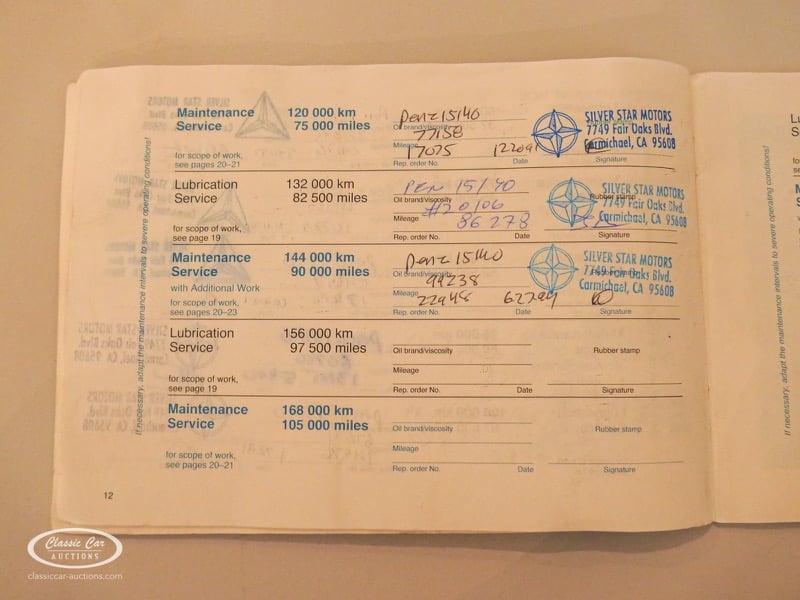 Maintenance 120 000 km Penz 15/40 SILVER STAR MOTORS
Service 75 000 miles Oil brand/viscosity 7749 Fair Oaks Blvd.
77158 Carmichael, CA 95608
Mileage
for scope of work, 17075
see pages 20–21 Rep. order No. Date Signature
Lubrication 132 000 km Pen 15/40 SILVER STAR MOTORS
Service 82 500 miles Oil brand/viscosity Rubber stamp 7749 Fair Oaks Blvd.
#20106 Carmichael, CA 95608
for scope of work, Mileage 86278
see page 19 Rep. order No. Date Signature
Maintenance 144 000 km Penz 15/40 SILVER STAR MOTORS
Service 90 000 miles Oil brand/viscosity 7749 Fair Oaks Blvd.
with Additional Work 99238 Carmichael, CA 95608
for scope of work, Mileage 22948 62794
see pages 20–23 Rep. order No. Date Signature
Lubrication 156 000 km
Service 97 500 miles Oil brand/viscosity Rubber stamp
Mileage
for scope of work,
see page 19 Rep. order No. Date Signature
Maintenance 168 000 km
Service 105 000 miles Oil brand/viscosity Rubber stamp
Mileage
for scope of work,
see pages 20–21 Rep. order No. Date Signature
If necessary, adapt the maintenance intervals to severe operating conditions!
12
If necessary, adapt the maintenance intervals to severe operating conditions!
Classic Car
AUCTIONS
classiccar-auctions.com